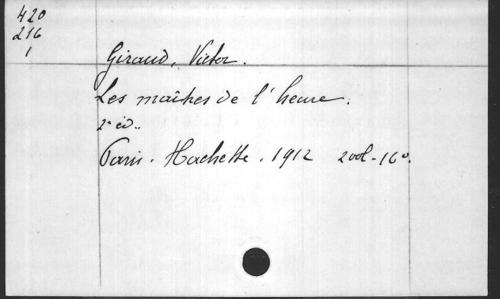 420
216
1
Giraud, Victor.
Les maîtres de l'heure.
2e éd..
Paris. Hachette. 1912 2 vol-16o.